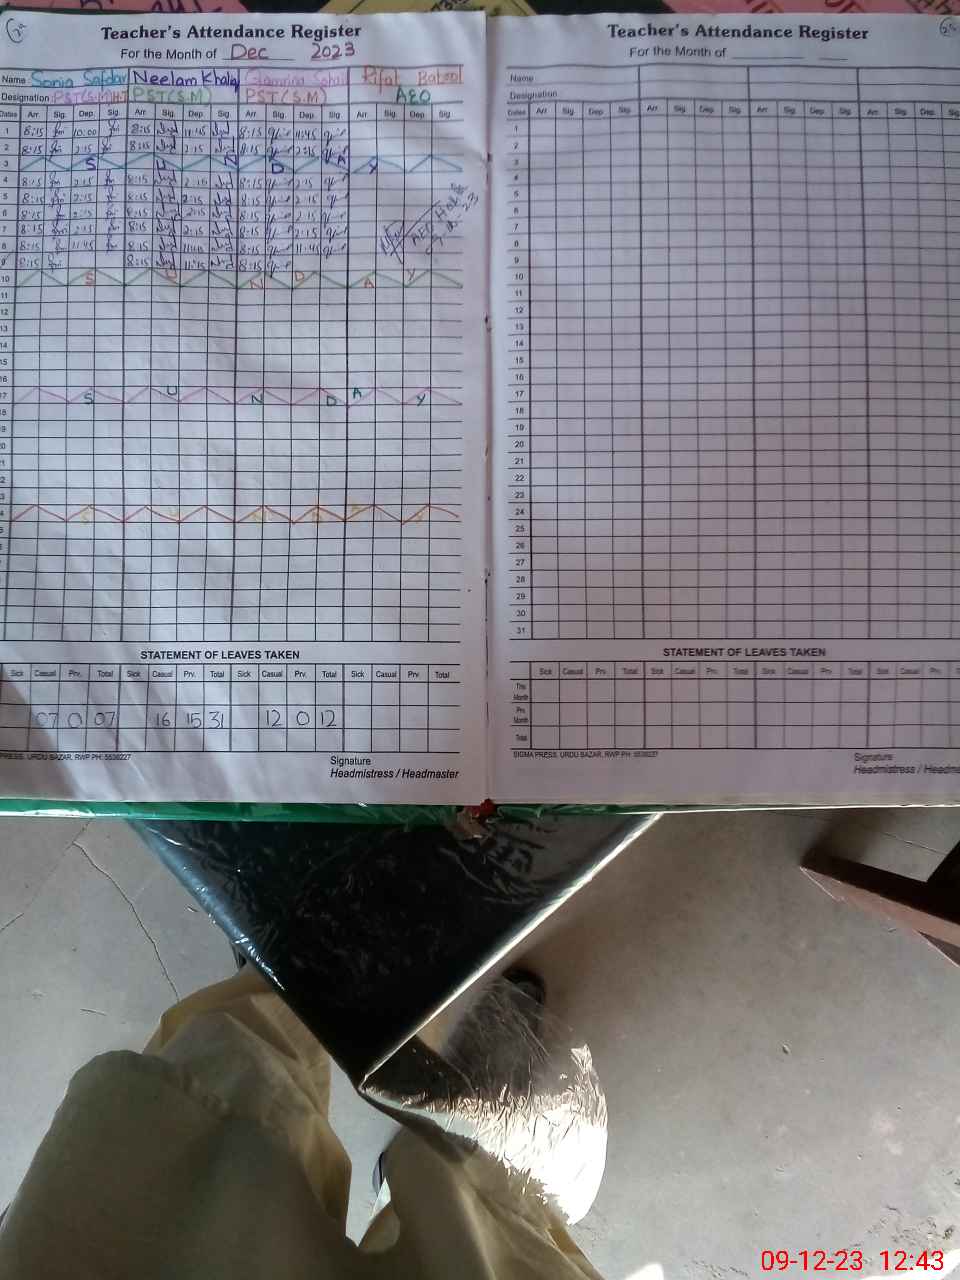 Teacher's Attendance Register
For the Month of Dec 2023
Name Sonia Safdar Neelam Khalq Rifat Batool
Designation PST(S.M)H.T PST(S.M) PST(S.M) AEO
Dates Arr. Sig. Dep. Sig. Arr. Sig. Dep. Sig. Arr. Sig. Dep. Sig. Arr. Sig. Dep. Sig.
1 8:15 10:00 8:15 11:45 8:15 11:45
2 8:15 2:15 8:15 2:15 8:15 2:15
3 S U N D A Y
4 8:15 2:15 8:15 2:15 8:15 2:15
5 8:15 2:15 8:15 2:15 8:15 2:15
6 8:15 2:15 8:15 2:15 8:15 2:15
7 8:15 2:15 8:15 2:15 8:15 2:15
8 8:15 11:45 8:15 11:45 8:15 11:45
9 8:15 8:15 11:45 8:15
10 S U N D A Y
11
12
13
14
15
16
17 S U N D A Y
18
19
20
21
22
23
24 S U N D A Y
25
STATEMENT OF LEAVES TAKEN
Sick Casual Prv. Total Sick Casual Prv. Total Sick Casual Prv. Total Sick Casual Prv. Total
07 0 07 16 15 31 12 0 12
PRESS: URDU BAZAR, RWP PH: 5536227
Signature
Headmistress / Headmaster
Teacher's Attendance Register
For the Month of
Name
Designation
Dates Arr. Sig. Dep. Sig. Arr. Sig. Dep. Sig. Arr. Sig. Dep. Sig. Arr. Sig. Dep. Sig.
1
2
3
4
5
6
7
8
9
10
11
12
13
14
15
16
17
18
19
20
21
22
23
24
25
26
27
28
29
30
31
STATEMENT OF LEAVES TAKEN
Sick Casual Prv. Total Sick Casual Prv. Total Sick Casual Prv. Total Sick Casual Prv.
This Month
Prv. Month
Total
SIGMA PRESS: URDU BAZAR, RWP PH: 5536227
Signature
Headmistress / Headme
09-12-23 12:43